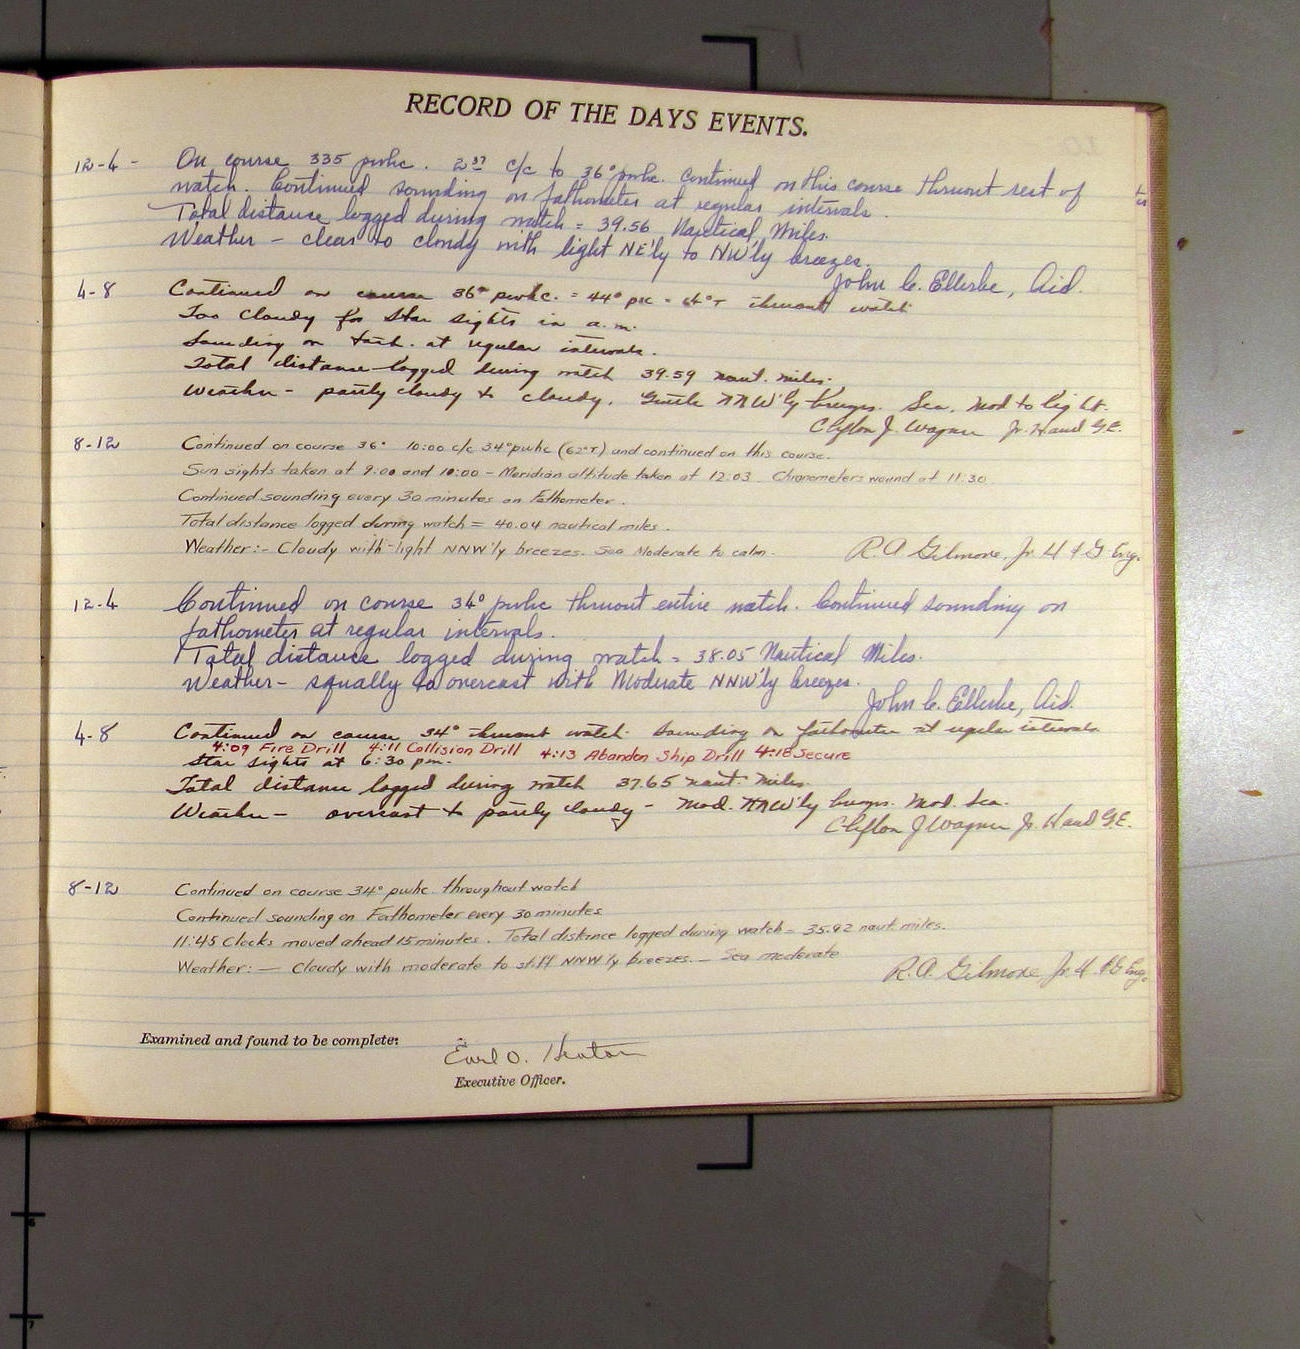 RECORD OF THE DAYS EVENTS.
12-4 - On course 335 pwhc. 2 37 c/c to 36° pwhc. Continued on this course thruout rest of
watch. Continued sounding on fathometer at regular intervals.
Total distance logged during watch = 39.56 Nautical Miles.
Weather - clear to cloudy with light NE'ly to NW'ly breezes.
John C. Ellerbe, Aid.
4-8 Continued on course 36° pwhc. = 44° psc = 64° T thruout watch
Too cloudy for star sights in a.m.
Sounding on fath. at regular intervals.
Total distance logged during watch 39.59 naut. miles.
Weather - partly cloudy to cloudy. Gentle NNW'ly breezes. Sea. Mod to light.
Clifton J. Wagner Jr. H and G.E.
8-12 Continued on course 36° 10:00 c/c 34° pwhc (62°T) and continued on this course.
Sun sights taken at 9:00 and 10:00 - Meridian altitude taken at 12:03 Chronometers wound at 11:30
Continued sounding every 30 minutes on Fathometer.
Total distance logged during watch = 40.04 nautical miles.
Weather:- Cloudy with light NNW'ly breezes. Sea Moderate to calm.
R.A. Gilmore, Jr. H & G Eng.
12-4 Continued on course 34° pwhc thruout entire watch. Continued sounding on
fathometer at regular intervals.
Total distance logged during watch = 38.05 Nautical Miles.
Weather- squally to overcast with Moderate NNW'ly breezes.
John C. Ellerbe, Aid.
4-8 Continued on course 34° thruout watch. Sounding on fathometer at regular intervals
4:09 Fire Drill 4:11 Collision Drill 4:13 Abandon Ship Drill 4:18 Secure
Star sights at 6:30 pm.
Total distance logged during watch 37.65 naut. miles.
Weather - overcast to partly cloudy - Mod. NNW'ly breezes. Mod. Sea.
Clifton J Wagner Jr. H and G.E.
8-12 Continued on course 34° pwhc throughout watch
Continued sounding on Fathometer every 30 minutes
11:45 Clocks moved ahead 15 minutes. Total distance logged during watch = 35.92 naut miles.
Weather: - Cloudy with moderate to stiff NNW'ly breezes. - Sea moderate
R.A. Gilmore, Jr. H & G Eng.
Examined and found to be complete:
Earl O. Heaton
Executive Officer.
6
7